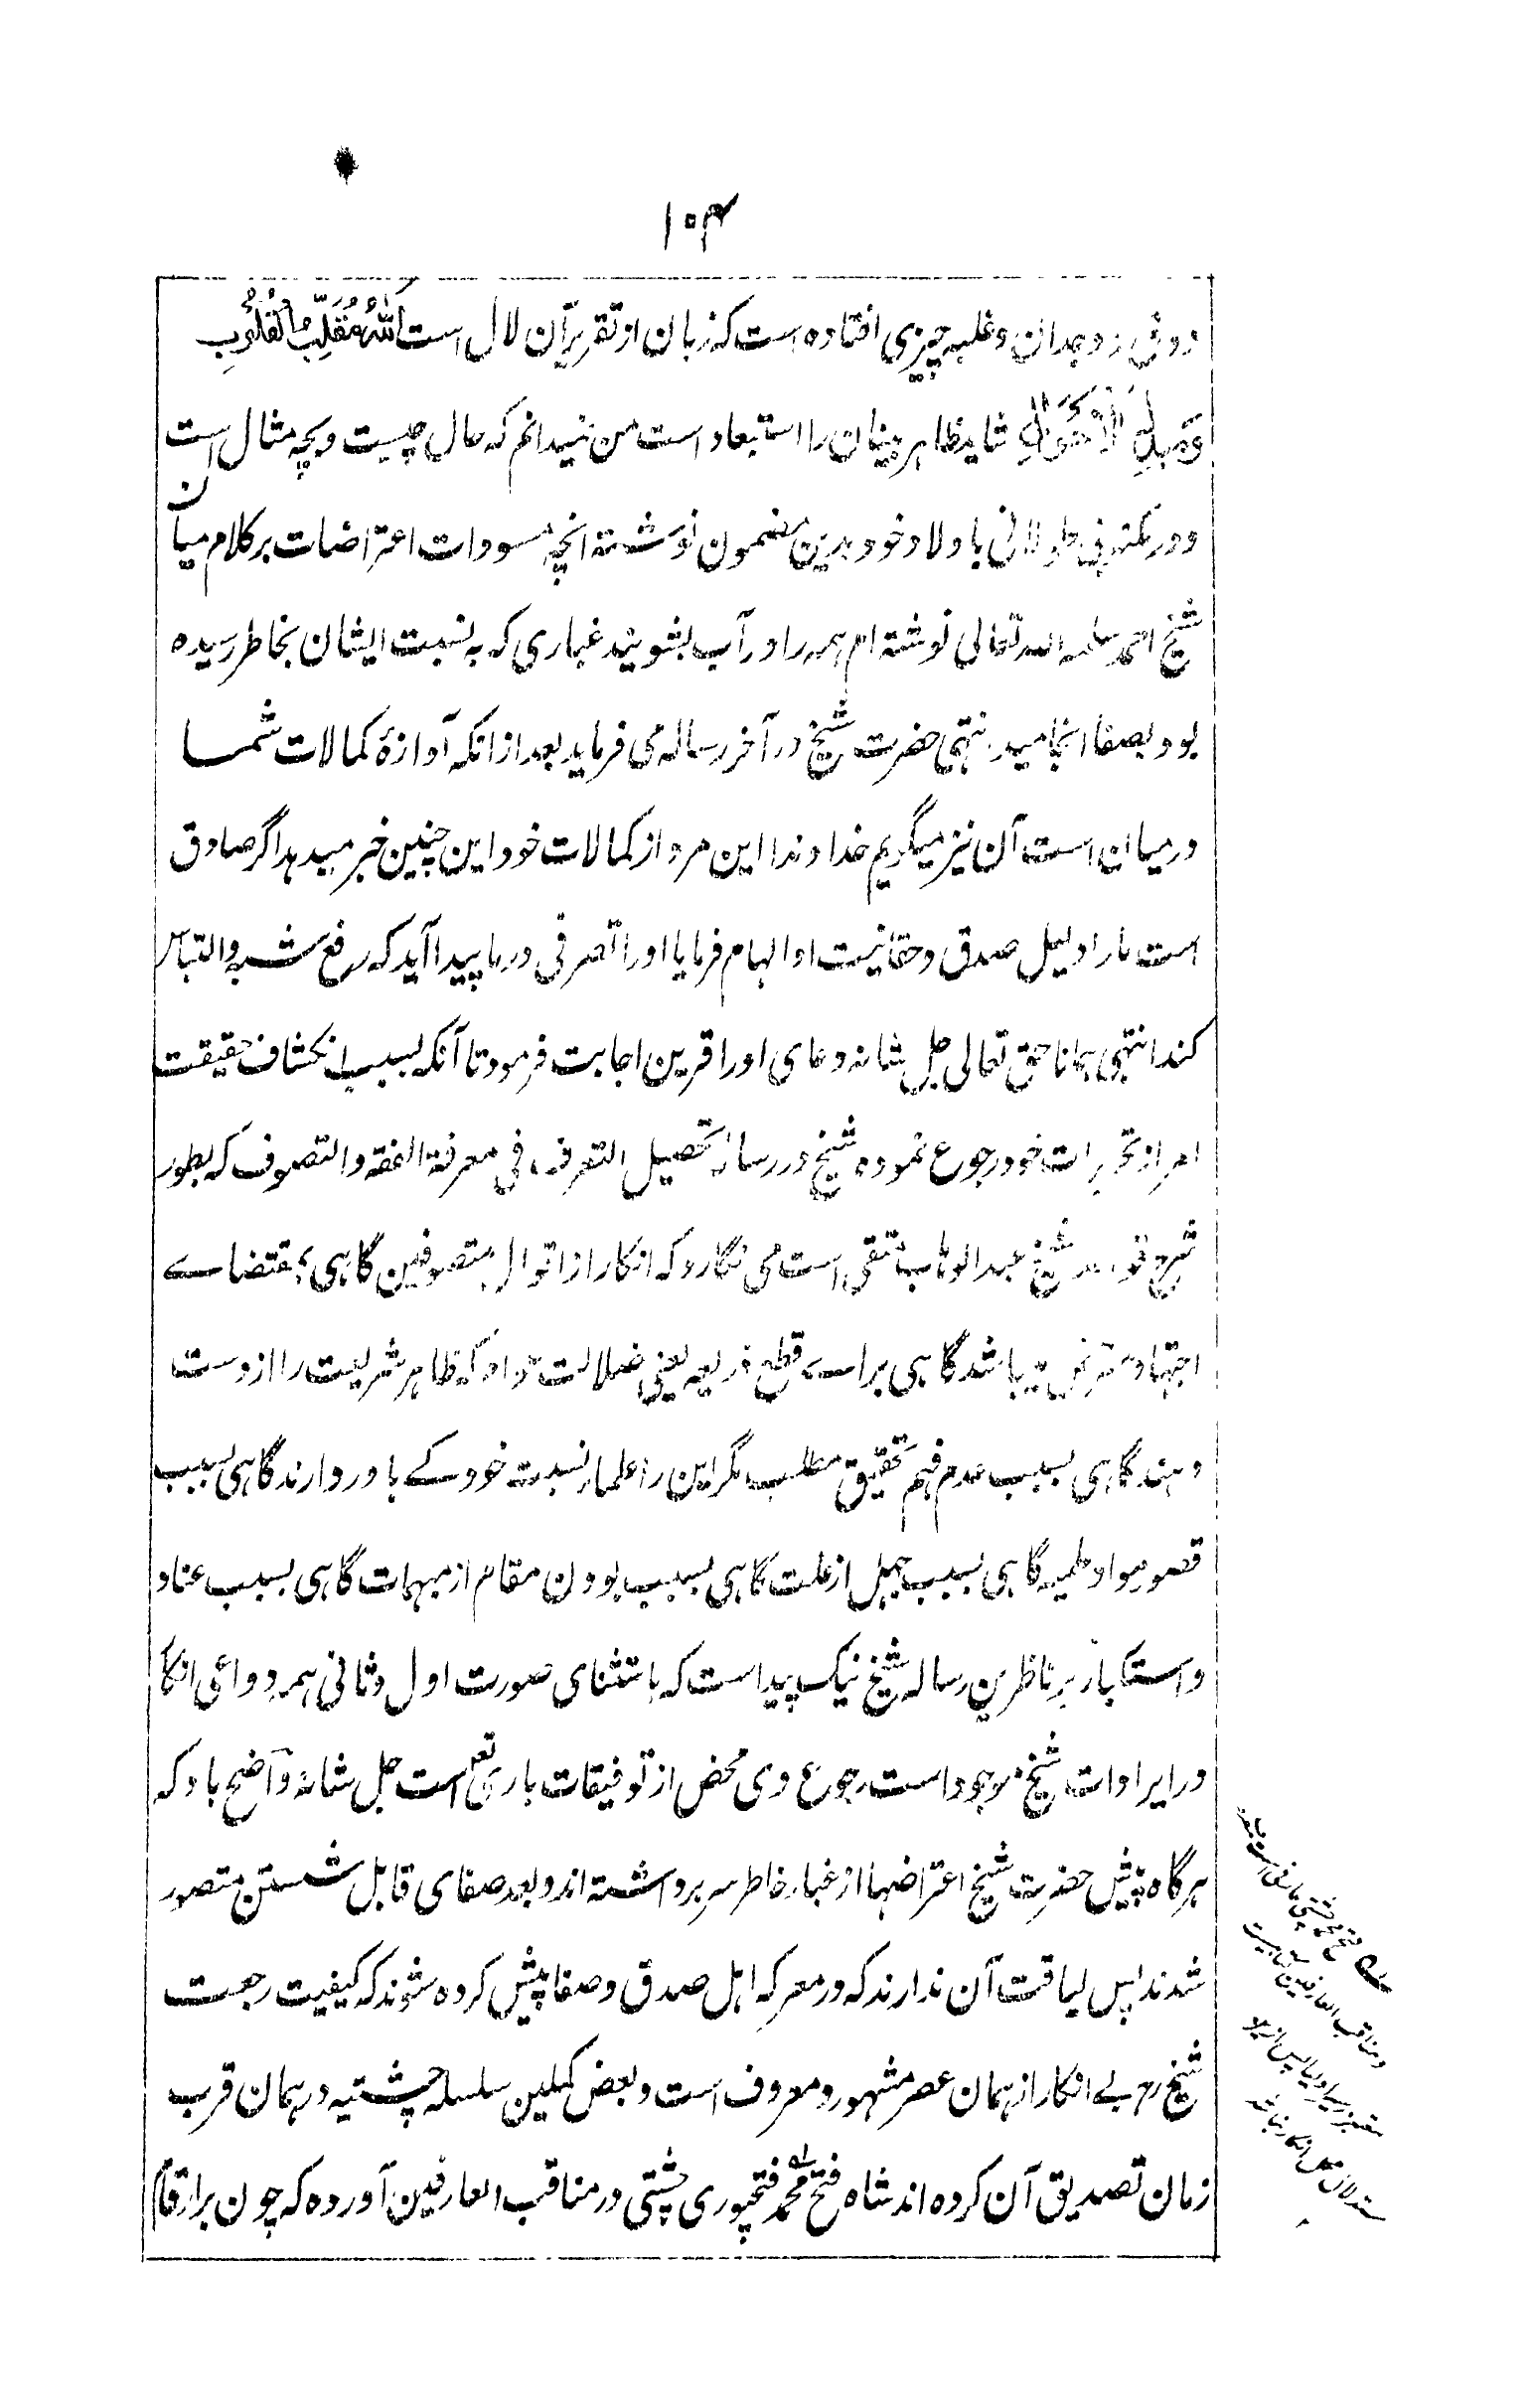 ۱۰۴
ذوق و وجدان و غلبه چیزی افتاده است که زبان از تقریر آن لال است اَللّٰهُ مُقَلِّبُ الْقُلُوْبِ
وَمُبَدِّلُ الْاَحْوَالِ شاید ظاهر بینان را استبعاد است من نمیدانم که حال چیست و بچه مثال است
و در مکتوبی طولانی باولاد خود بدین مضمون نوشته انچه مسودات اعتراضات بر کلام میان
شیخ احمد سلمه الله تعالی نوشته ام همه را در آب بشویند غباری که به نسبت ایشان بخاطر رسیده
بود بصفا انجامید انتهی حضرت شیخ در آخر رساله می فرماید بعد از انکه آوازهٔ کمالات شما
درمیان است آن نیز میگریم خداوندا این مرد از کمالات خود این چنین خبر میدهد اگر صادق
است مارا دلیل صدق و حقانیت او الهام فرما یا اورا تصرفی در ما پیدا آید که رفع شبه والتباس
کند انتهی همانا حق تعالی جل شانه دعای اورا قرین اجابت فرمود تا آنکه بسبب انکشاف حقیقت
امر از تحریرات خود رجوع نموده شیخ در رسالهٔ تحصیل التعرف فی معرفة الفقه والتصوف که بطور
شرح شیخ عبدالوهاب متقی است می نگارد که انکار از اقوال متصوفین گاهی بمقتضاے
اجتهاد باشد گاهی براے قطع ذریعه یعنی ضلالت عوام که ظاهر شریعت را از دست
دهند گاهی بسبب عدم فهم تحقیق مطلب مگر این را علما بنسبت خود کے باور دارند گاهی بسبب
قصور مواد علمیه گاهی بسبب جهل از علت گاهی بسبب بودن مقام از مبهمات گاهی بسبب عناد
واستکبار بر ناظرین رساله شیخ نیک پیداست که باستثنای صورت اول وثانی همه دواعی انکار
در ایرادات شیخ موجود است رجوع وی محض از توفیقات باری تعالی است جل شانه واضح باد که
هرگاه پیش حضرت شیخ اعتراضها از غبار خاطر سر برداشته اند و بعد صفای قابل شستن متصور
شدند پس لیاقت آن ندارند که در معرکه اهل صدق و صفا پیش کرده شوند که کیفیت رجعت
شیخ رح بے انکار از همان عصر مشهور و معروف است و بعض کملین سلسله چشتیه در همان قرب
زمان تصدیق آن کرده اند شاه فتح محمد فتحپوری چشتی در مناقب العارفین آورده که چون بر ارقام
فتح محمد چشتی
ومناقب العارفین